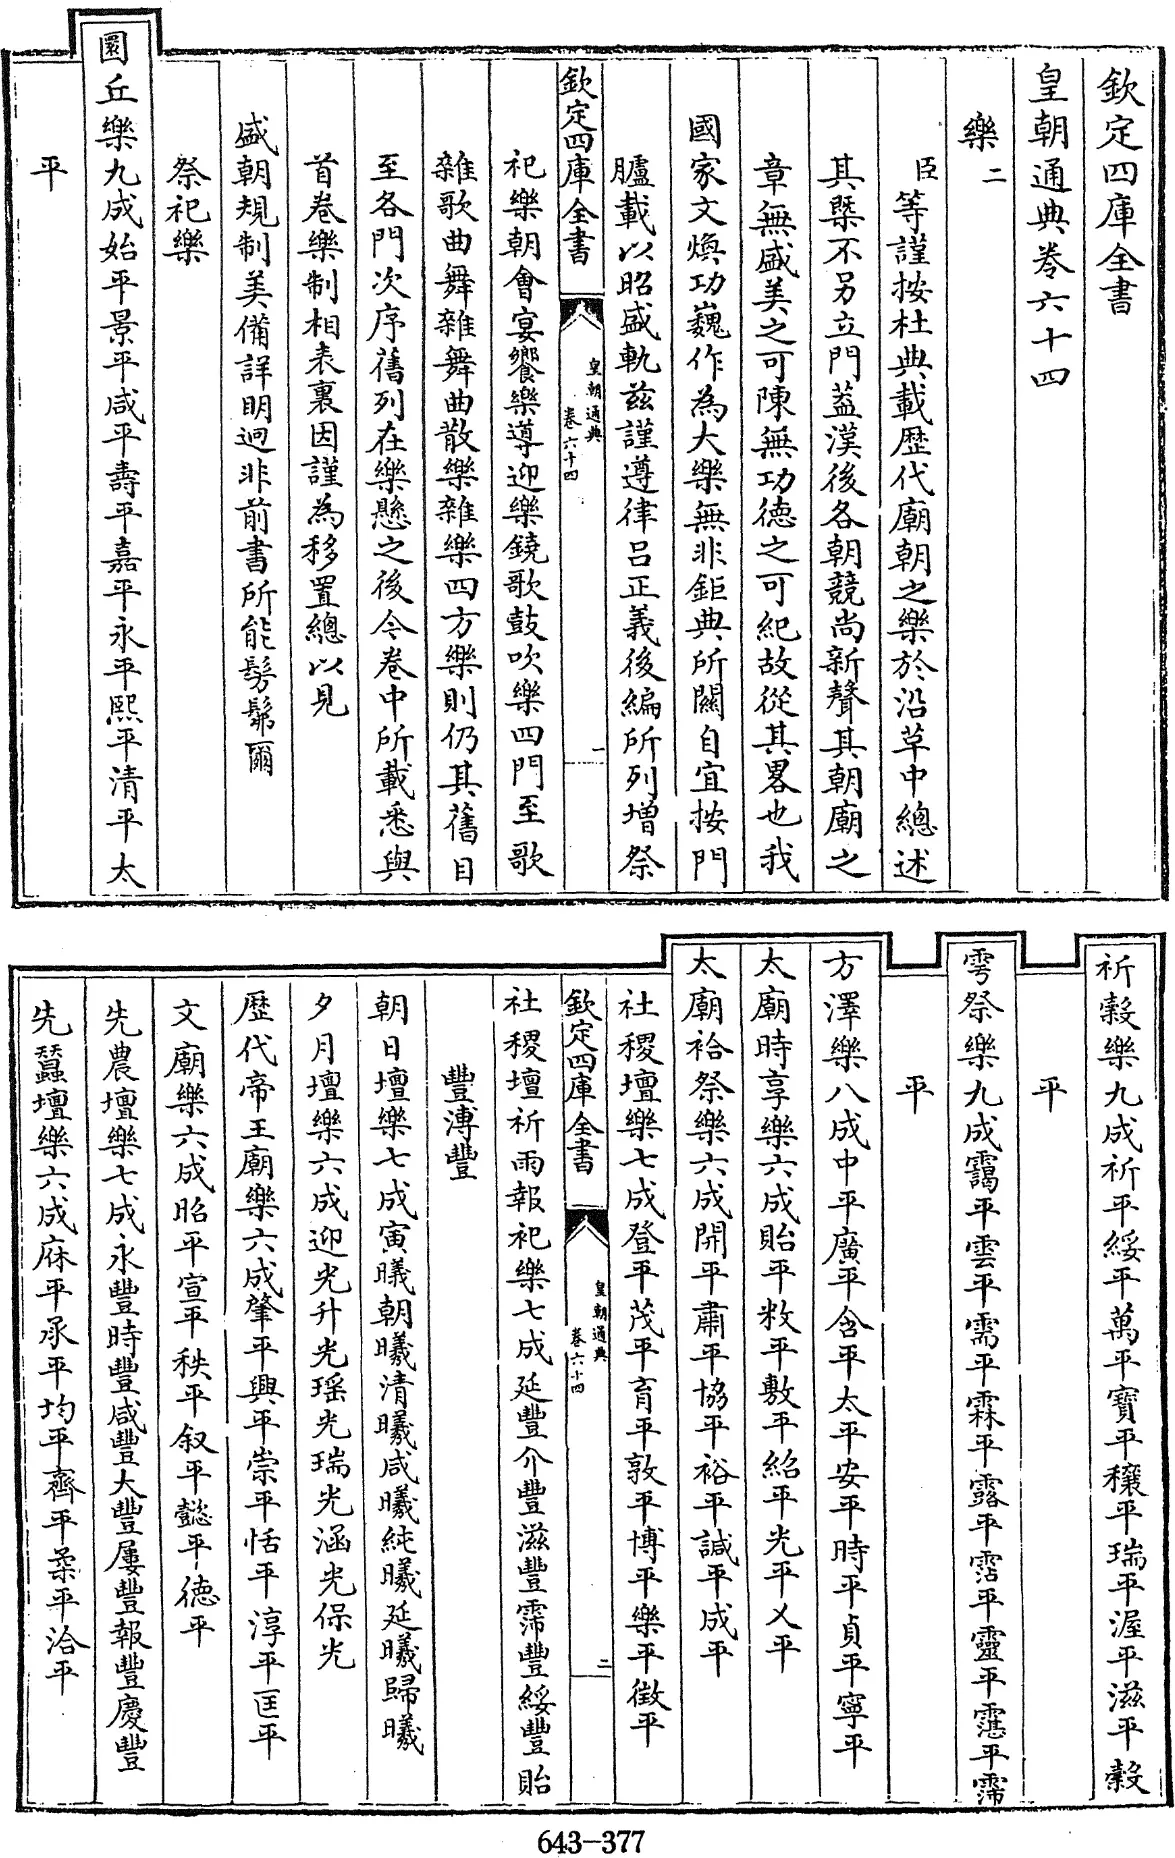 欽定四庫全書
皇朝通典卷六十四
樂二
臣等謹按杜典載歴代廟朝之樂於沿革中總述
其槩不另立門葢漢後各朝競尚新聲其朝廟之
章無盛美之可陳無功德之可紀故從其畧也我
國家文煥功巍作為大樂無非鉅典所關自宜按門
臚載以昭盛軌兹謹遵律吕正義後編所列增祭
欽定四庫全書
皇朝通典
卷六十四
一
祀樂朝會宴饗樂導迎樂鐃歌鼓吹樂四門至歌
雜歌曲舞雜舞曲散樂雜樂四方樂則仍其舊目
至各門次序舊列在樂懸之後今卷中所載悉與
首卷樂制相表裏因謹為移置總以見
盛朝規制美備詳明迥非前書所能髣髴爾
祭祀樂
圜丘樂九成始平景平咸平壽平嘉平永平熙平清平太
平
祈穀樂九成祈平綏平萬平寶平穰平瑞平渥平滋平穀
平
雩祭樂九成靄平雲平需平霖平露平霑平靈平霮平霈
平
方澤樂八成中平廣平含平太平安平時平貞平寧平
太廟時享樂六成貽平敉平敷平紹平光平乂平
太廟祫祭樂六成開平肅平協平裕平諴平成平
社稷壇樂七成登平茂平育平敦平博平樂平徵平
欽定四庫全書
皇朝通典
卷六十四
二
社稷壇祈雨報祀樂七成延豐介豐滋豐霈豐綏豐貽
豐溥豐
朝日壇樂七成寅曦朝曦清曦咸曦純曦延曦歸曦
夕月壇樂六成迎光升光瑶光瑞光涵光保光
歴代帝王廟樂六成肇平興平崇平恬平淳平匡平
文廟樂六成昭平宣平秩平叙平懿平德平
先農壇樂七成永豐時豐咸豐大豐屢豐報豐慶豐
先蠶壇樂六成庥平承平均平齊平柔平洽平
643-377